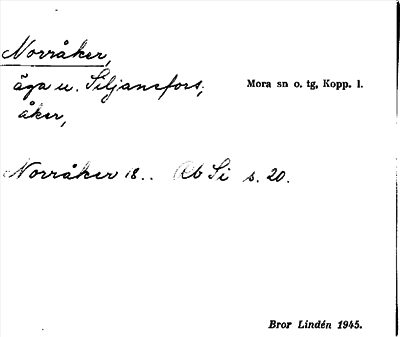 Norråker,
äga u. Siljansfors; Mora sn o. tg, Kopp. l.
åker,
Norråker 18.. Rb Si s. 20.
Bror Lindén 1945.